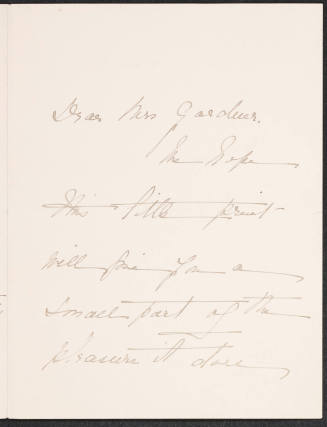 Dear Mrs Gardner.
We hope
this little print
will give you a
small part of the
pleasure it does